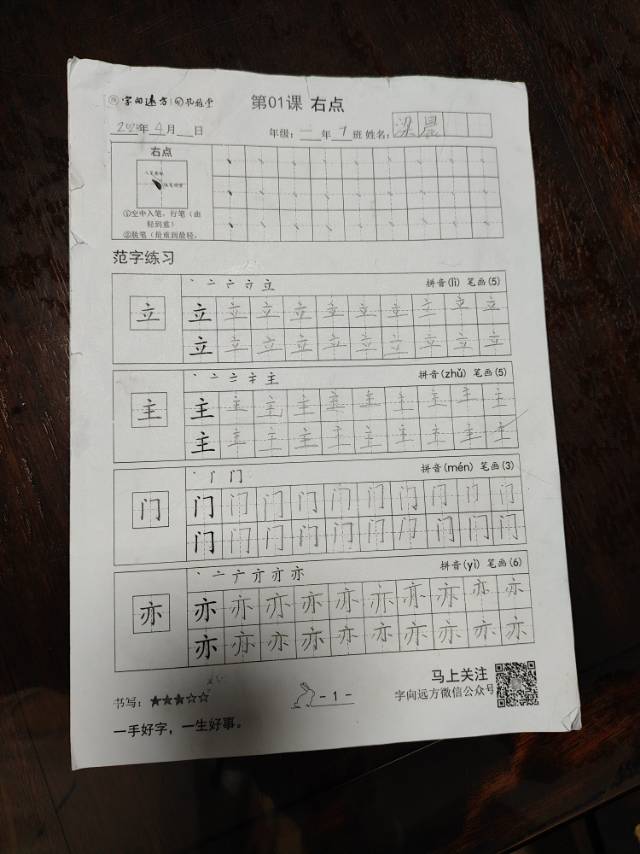 字向远方
第01课 右点
年 4月 日 年级: 一 年 1 班 姓名: 梁晨
右点
①空中入笔,行笔(由
轻到重)
②驻笔(最重到最轻,
范字练习
立 丶 亠 亠 立 立 拼音(lì) 笔画(5)
立 立 立 立 立 立 立 立 立 立
立 立 立 立 立 立 立 立 立 立
主 丶 亠 主 拼音(zhǔ) 笔画(5)
主 主 主 主 主 主 主 主 主 主
主 主 主 主 主 主 主 主 主 主
门 丶 门 拼音(mén) 笔画(3)
门 门 门 门 门 门 门 门 门 门
门 门 门 门 门 门 门 门 门 门
亦 丶 亠 亦 拼音(yì) 笔画(6)
亦 亦 亦 亦 亦 亦 亦 亦 亦 亦
亦 亦 亦 亦 亦 亦 亦 亦 亦 亦
书写: ★★★☆☆
- 1 -
马上关注
字向远方微信公众号
一手好字,一生好事。